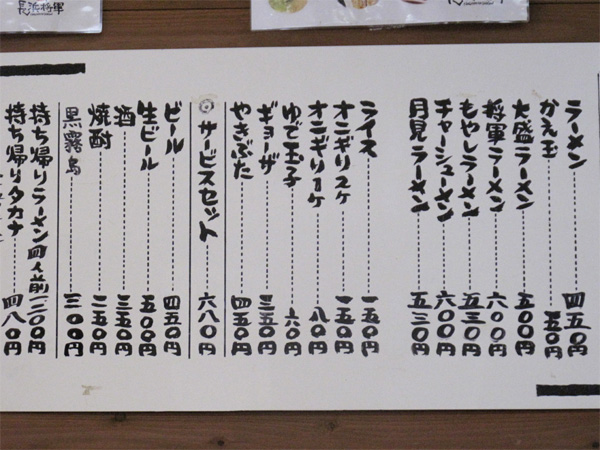 長浜将軍
ラーメン 四五〇円
かえ玉 一五〇円
大盛ラーメン 五〇〇円
将軍ラーメン 六〇〇円
もやしラーメン 五三〇円
チャーシューメン 六〇〇円
月見ラーメン 五三〇円
ライス 一五〇円
オニギリ2ケ 一五〇円
オニギリ1ケ 八〇円
ゆで玉子 六〇円
ギョーザ 三五〇円
やきぶた 四五〇円
◎サービスセット 六八〇円
ビール 四五〇円
生ビール 五〇〇円
酒 三五〇円
焼酎 二五〇円
黒霧島 三〇〇円
持ち帰りラーメン四人前 一二〇〇円
持ち帰りタカナ 四八〇円